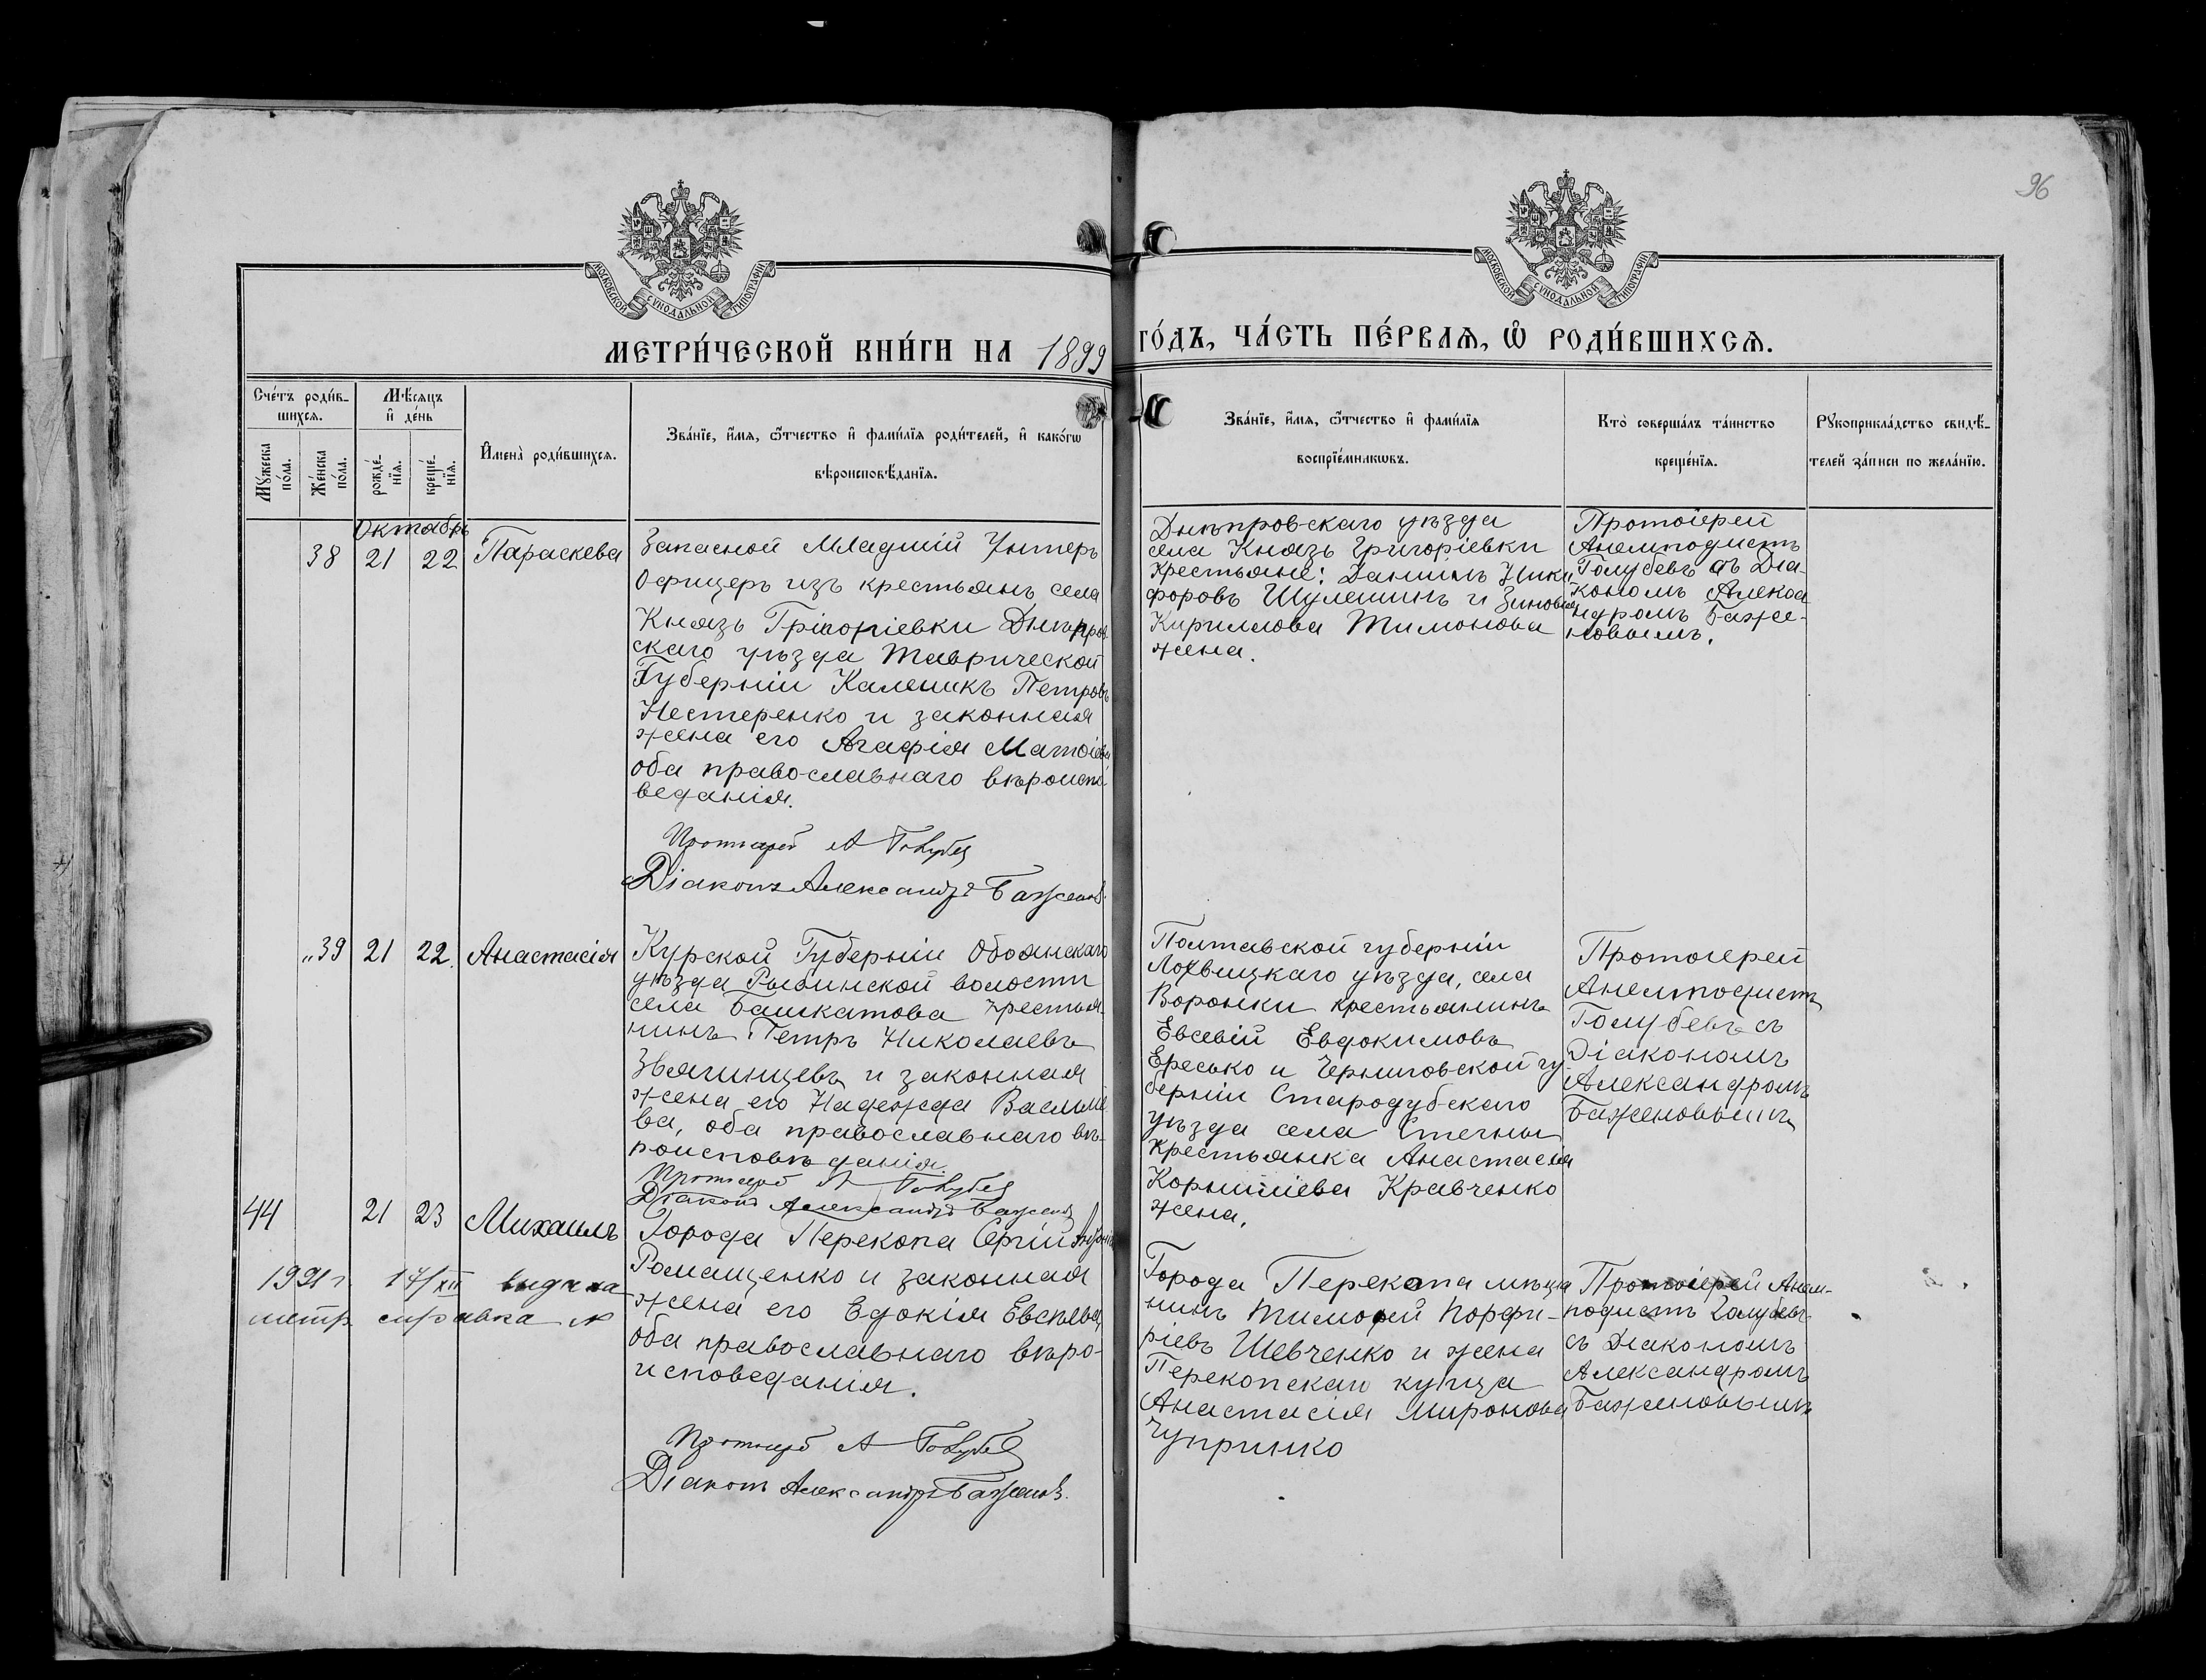 96
МОСКОВСКОЙ СѴНОДАЛЬНОЙ ТИПОГРАФІИ
МОСКОВСКОЙ СѴНОДАЛЬНОЙ ТИПОГРАФІИ
МЕТРИ́ЧЕСКОЙ КНИ́ГИ НА 1899 ГО́ДЪ, ЧА́СТЬ ПЕ́РВАѦ, Ѿ РОДИ́ВШИХСѦ.
Сче́тъ роди́в-
шихсѧ.
Мꙋ́жеска
по́ла.
Же́нска
по́ла.
Мѣ́сѧцъ
и҆ де́нь
рожде́-
нїѧ.
креще́-
нїѧ.
И҆мена̀ роди́вшихсѧ.
Зва́нїе, и҆́мѧ, ѻ҆́тчество и҆ фами́лїѧ роди́телей, и҆ како́гѡ
вѣроисповѣ́данїѧ.
Зва́нїе, и҆́мѧ, ѻ҆́тчество и҆ фами́лїѧ
воспрїе́мникѡвъ.
Кто̀ соверша́лъ та́инство
креще́нїѧ.
Рꙋкоприкла́дство свидѣ́-
телей за́писи по жела́нїю.
Октябрь
38 21 22 Параскева
Запасной Младшій Унтеръ
Офицеръ изъ крестьянъ села
Князь Григоріевки Днѣпров
скаго уѣзда Таврической
Губерніи Каленикъ Петровъ
Нестеренко и законная
жена его Агафія
оба православнаго вѣроиспо
веданія.
Протоіерей А Голубев
Діаконъ Александръ Баженов
Днѣпровскаго уѣзда
села Князь Григоріевки
Крестьяне: Даніилъ Ники
форовъ Шулешинъ и Зиновія
Кириллова Тимонова
жена.
Протоіерей
Анемподистъ
Голубевъ съ Діа-
кономъ Алекса
ндромъ Баже-
новымъ.
39 21 22. Анастасія
Курской Губерніи Обоянскаго
уѣзда Рыбинской волости
села Башкатова крестья
нинъ Петръ Николаевъ
Звягинцевъ и законная
жена его Надежда Василіе
ва, оба православнаго вѣ-
роисповѣданія.
Протоіерей А Голубев
Діаконъ Александръ Баженов
Полтавской губерніи
Лохвицкаго уѣзда, села
Воронки крестьянинъ
Евсевій Евдокимовъ
Ересько и Черниговской гу
берніи Стародубскаго
уѣзда села
Крестьянка Анастасія
Корниліева Кравченко
жена.
Протоіерей
Анемподистъ
Голубевъ съ
Діакономъ
Александромъ
Баженовымъ
44 21 23 Михаилъ
1991 г. 17/XII выдана
метр. справка №
Города Перекопа Сергій
Ромащенко и законная
жена его Едокія
оба православнаго вѣро-
исповеданія.
Протоіерей А Голубев
Діаконъ Александръ Баженов.
Города Перекопа мѣща
нинъ Тимофей Порфи-
ріевъ Шевченко и жена
Перекопскаго купца
Анастасія Миронова
Чупринко
Протоіерей Анем-
подистъ Голубевъ
съ Діакономъ
Александромъ
Баженовымъ